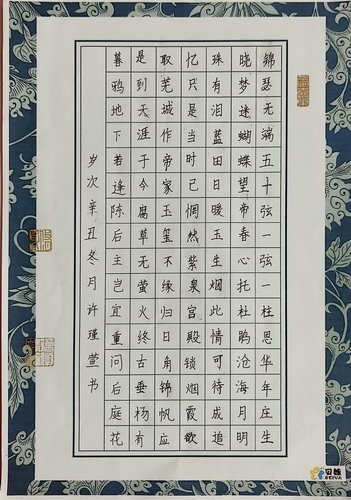 锦瑟无端五十弦一弦一柱思华年庄生
晓梦迷蝴蝶望帝春心托杜鹃沧海月明
珠有泪蓝田日暖玉生烟此情可待成追
忆只是当时已惘然紫泉宫殿锁烟霞欲
取芜城作帝家玉玺不缘归日角锦帆应
是到天涯于今腐草无萤火终古垂杨有
暮鸦地下若逢陈后主岂宜重问后庭花
岁次辛丑冬月许瑾萱书